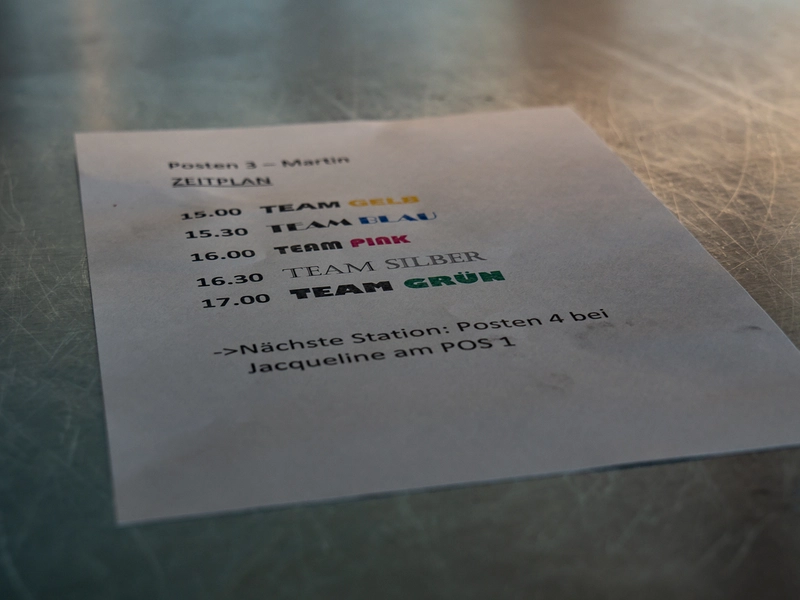 Posten 3 – Martin
ZEITPLAN
15.00 TEAM GELB
15.30 TEAM BLAU
16.00 TEAM PINK
16.30 TEAM SILBER
17.00 TEAM GRÜN
->Nächste Station: Posten 4 bei
Jacqueline am POS 1